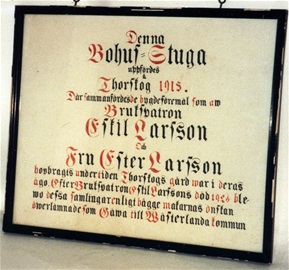 Denna
Bohus-Stuga
uppfördes
å
Thorskog 1915.
Där sammanfördes de bygdeföremål som aw
Brukspatron
Eskil Larsson
Och
Fru Ester Larsson
hopdragits under tiden Thorskogs gård war i deras
ägo. Efter Brukspatron Eskil Larssons död 1926 ble-
wo dessa samlingar enligt bägge makarnas önskan
överlämnade som Gåwa till Wästerlanda kommun